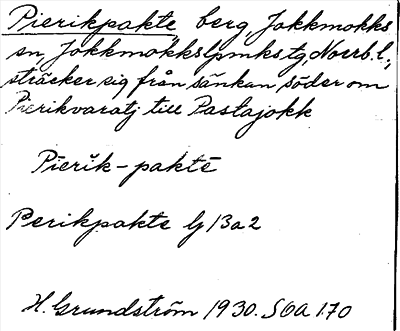 Pierikpakte berg, Jokkmokks
sn, Jokkmokks lpmks tg, Norrb. l.,
sträcker sig från sänkan söder om
Pierikvaratj till Pastajokk
Pierik-paktē
Perikpakte Gj 13a2
H. Grundström 1930. S6a 170